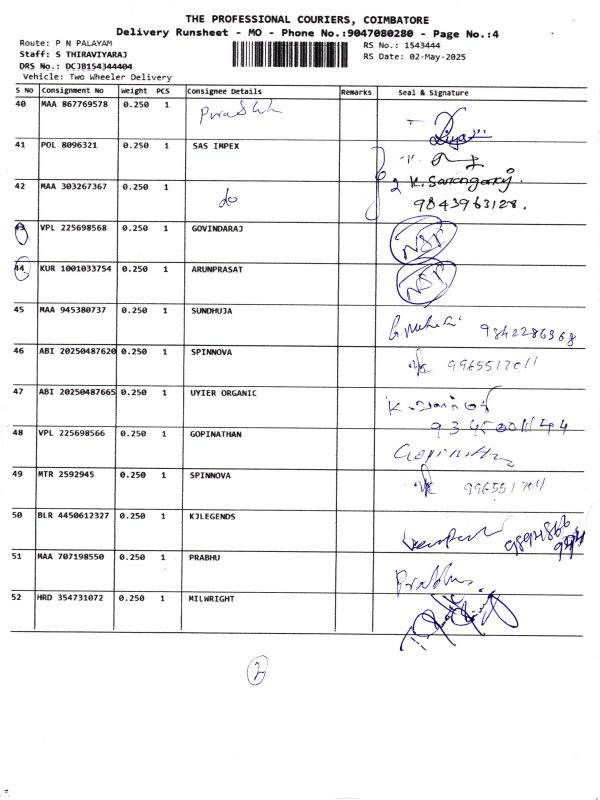 THE PROFESSIONAL COURIERS, COIMBATORE
Delivery Runsheet - MO - Phone No.:9047080280 - Page No.:4
Route: P N PALAYAM
RS No.: 1543444
Staff: S THIRAVIYARAJ
RS Date: 02-May-2025
DRS No.: DCJB154344404
Vehicle: Two Wheeler Delivery
S No Consignment No Weight PCS Consignee Details Remarks Seal & Signature
40 MAA 867769578 0.250 1
41 POL 8096321 0.250 1 SAS IMPEX
42 MAA 303267367 0.250 1 do 2
9843963128.
43 VPL 225698568 0.250 1 GOVINDARAJ NSP
44 KUR 1001033754 0.250 1 ARUNPRASAT NSP
45 MAA 945380737 0.250 1 SUNDHUJA 9842286368
46 ABI 20250487620 0.250 1 SPINNOVA
47 ABI 20250487665 0.250 1 UYIER ORGANIC
48 VPL 225698566 0.250 1 GOPINATHAN
49 MTR 2592945 0.250 1 SPINNOVA
50 BLR 4450612327 0.250 1 KJLEGENDS
51 MAA 707198550 0.250 1 PRABHU Prabhu
52 HRD 354731072 0.250 1 MILWRIGHT
2